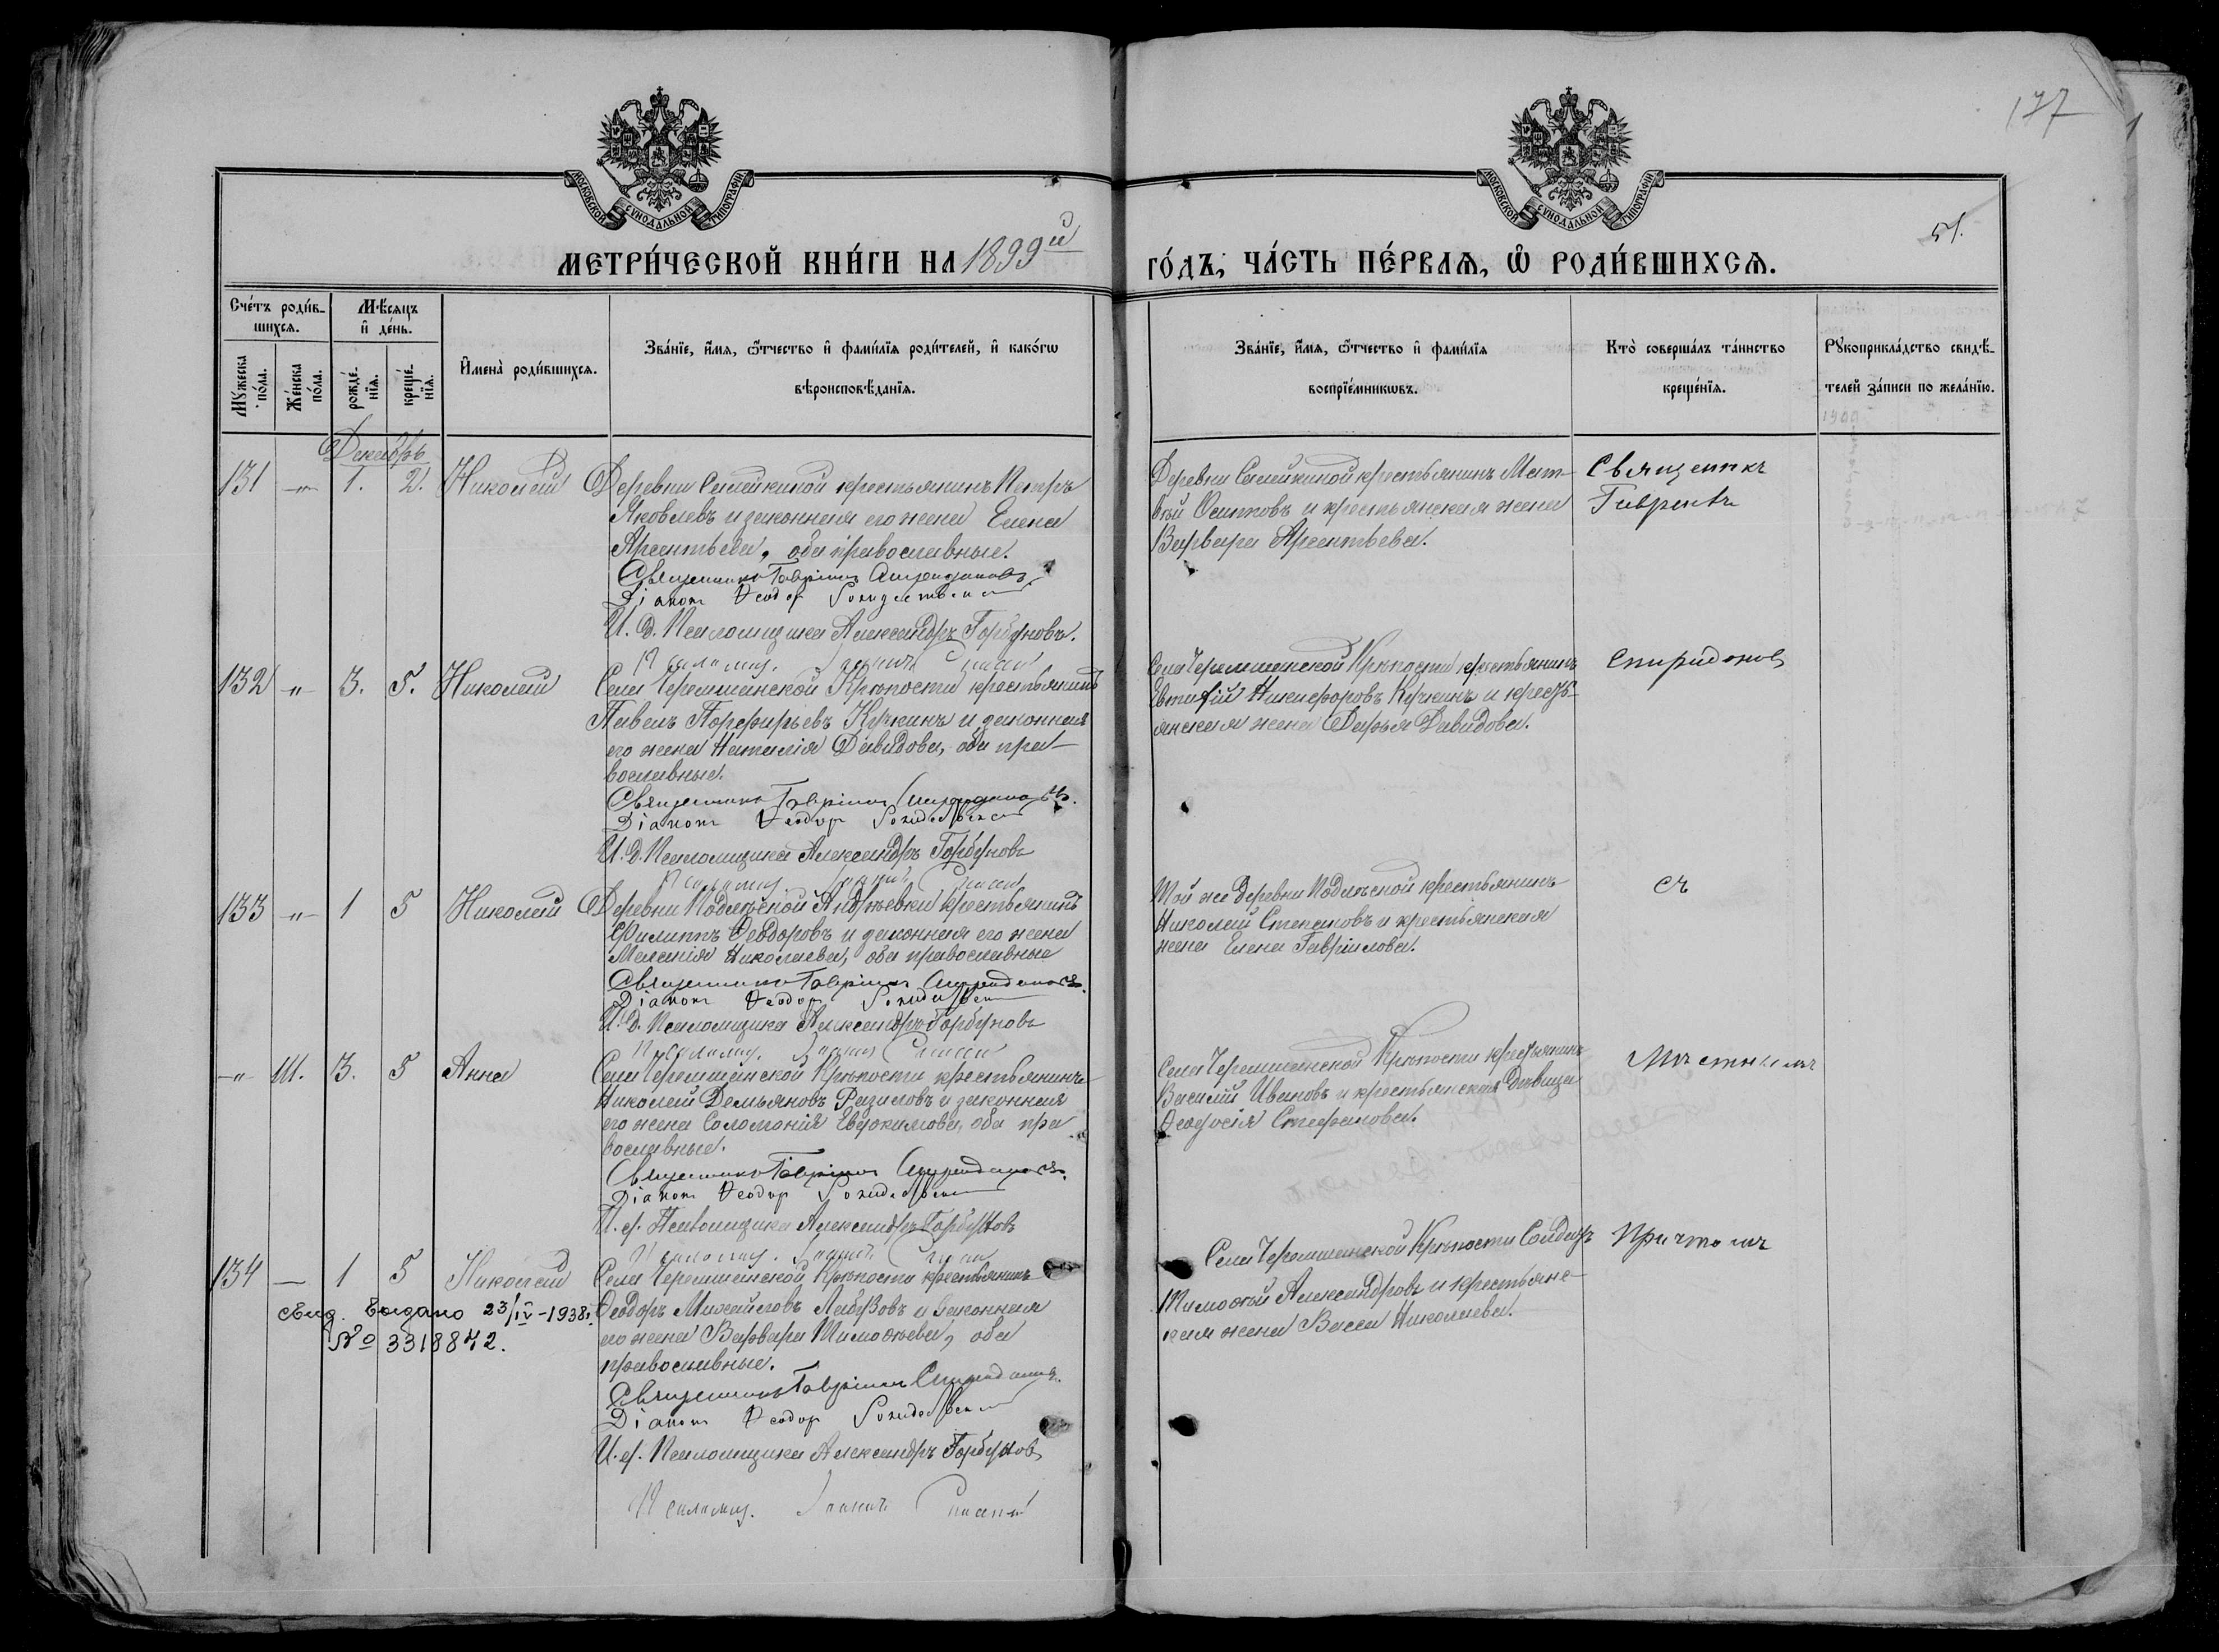 177
51.
МОСКОВСКОЙ СѴНОДАЛЬНОЙ ТИПОГРАФІИ
МОСКОВСКОЙ СѴНОДАЛЬНОЙ ТИПОГРАФІИ
МЕТРИ́ЧЕСКОЙ КНИ́ГИ НА 1899й
ГО́ДЪ, ЧА́СТЬ ПЕ́РВАѦ, Ѽ РОДИ́ВШИХСѦ.
Сче́тъ роди́вшихсѧ.
Мꙋжеска по́ла.
Же́нска по́ла.
Мѣ́сѧцъ и҆ де́нь.
рожде́нїѧ.
креще́нїѧ.
И҆мена̀ роди́вшихсѧ.
Зва́нїе, и҆́мѧ, ѻ҆́тчество и҆ фами́лїѧ роди́телей, и҆ како́гѡ
вѣроисповѣ́данїѧ.
Зва́нїе, и҆́мѧ, ѻ҆́тчество и҆ фами́лїѧ
воспрїе́мникѡвъ.
Кто̀ соверша́лъ та́инство
креще́нїѧ.
Рꙋкоприкла́дство свидѣ́телей за́писи по жела́нїю.
Декабрь
131 -"- 1. 2. Николай
Деревни Семейкиной крестьянинъ Петръ
Яковлевъ и законная его жена Елена
Арсентьева, оба православные.
Священникъ Гавріилъ Спиридоновъ.
Діаконъ Ѳеодоръ Рождественскій
И. д. Псаломщика Александръ Горбуновъ.
Псаломщ. Іоаннъ
Деревни Семейкиной крестьянинъ Мат-
вѣй Осиповъ и крестьянская жена
Варвара Арсентьева.
Священникъ
Гавріилъ
132 " 3. 5. Николай
Села Черемшанской Крѣпости крестьянинъ
Павелъ Порфирьевъ Кучкинъ и законная
его жена Наталія Давидова, оба пра-
вославные.
Священникъ Гавріилъ Спиридоновъ.
Діаконъ Ѳеодоръ Рождественскій
И. д. Псаломщика Александръ Горбуновъ
Псаломщ. Іоаннъ
Села Черемшанской Крѣпости крестьянинъ
Евтифій Никифоровъ Кучкинъ и кресть-
янская жена Дарья Давидова.
Спиридоновъ
133 " 1 5 Николай
Деревни Подлѣсной Андрѣевки крестьянинъ
Филиппъ Ѳеодоровъ и законная его жена
Меланія Николаева, оба православные
Священникъ Гавріилъ Спиридоновъ.
Діаконъ Ѳеодоръ Рождественскій
И. д. Псаломщика Александръ Горбуновъ
Псаломщ. Іоаннъ
Той же деревни Подлѣсной крестьянинъ
Николай Степановъ и крестьянская
жена Елена Гавріилова.
съ
-"- 111. 3. 5 Анна
Села Черемшанской Крѣпости крестьянинъ
Николай Демьяновъ Разиловъ и законная
его жена Соломонія Евдокимова, оба пра
вославные.
Священникъ Гавріилъ Спиридоновъ.
Діаконъ Ѳеодоръ Рождественскій
И. д. Псаломщика Александръ Горбуновъ
Псаломщ. Іоаннъ
Села Черемшанской Крѣпости крестьянинъ
Василій Ивановъ и крестьянская дѣвица
Ѳеодосія Стефанова.
Мѣстнымъ
134 — 1 5 Николай
свид. выдано 23/IV-1938г.
№ 3318872.
Села Черемшанской Крѣпости крестьянинъ
Ѳеодоръ Михайловъ Лабузовъ и законная
его жена Варвара Тимоѳеева, оба
православные.
Священникъ Гавріилъ Спиридоновъ.
Діаконъ Ѳеодоръ Рождественскій
И. д. Псаломщика Александръ Горбуновъ
Псаломщ. Іоаннъ
Села Черемшанской Крѣпости Солдатъ
Тимоѳей Александровъ и крестьянс-
кая жена Васса Николаева.
Причтомъ